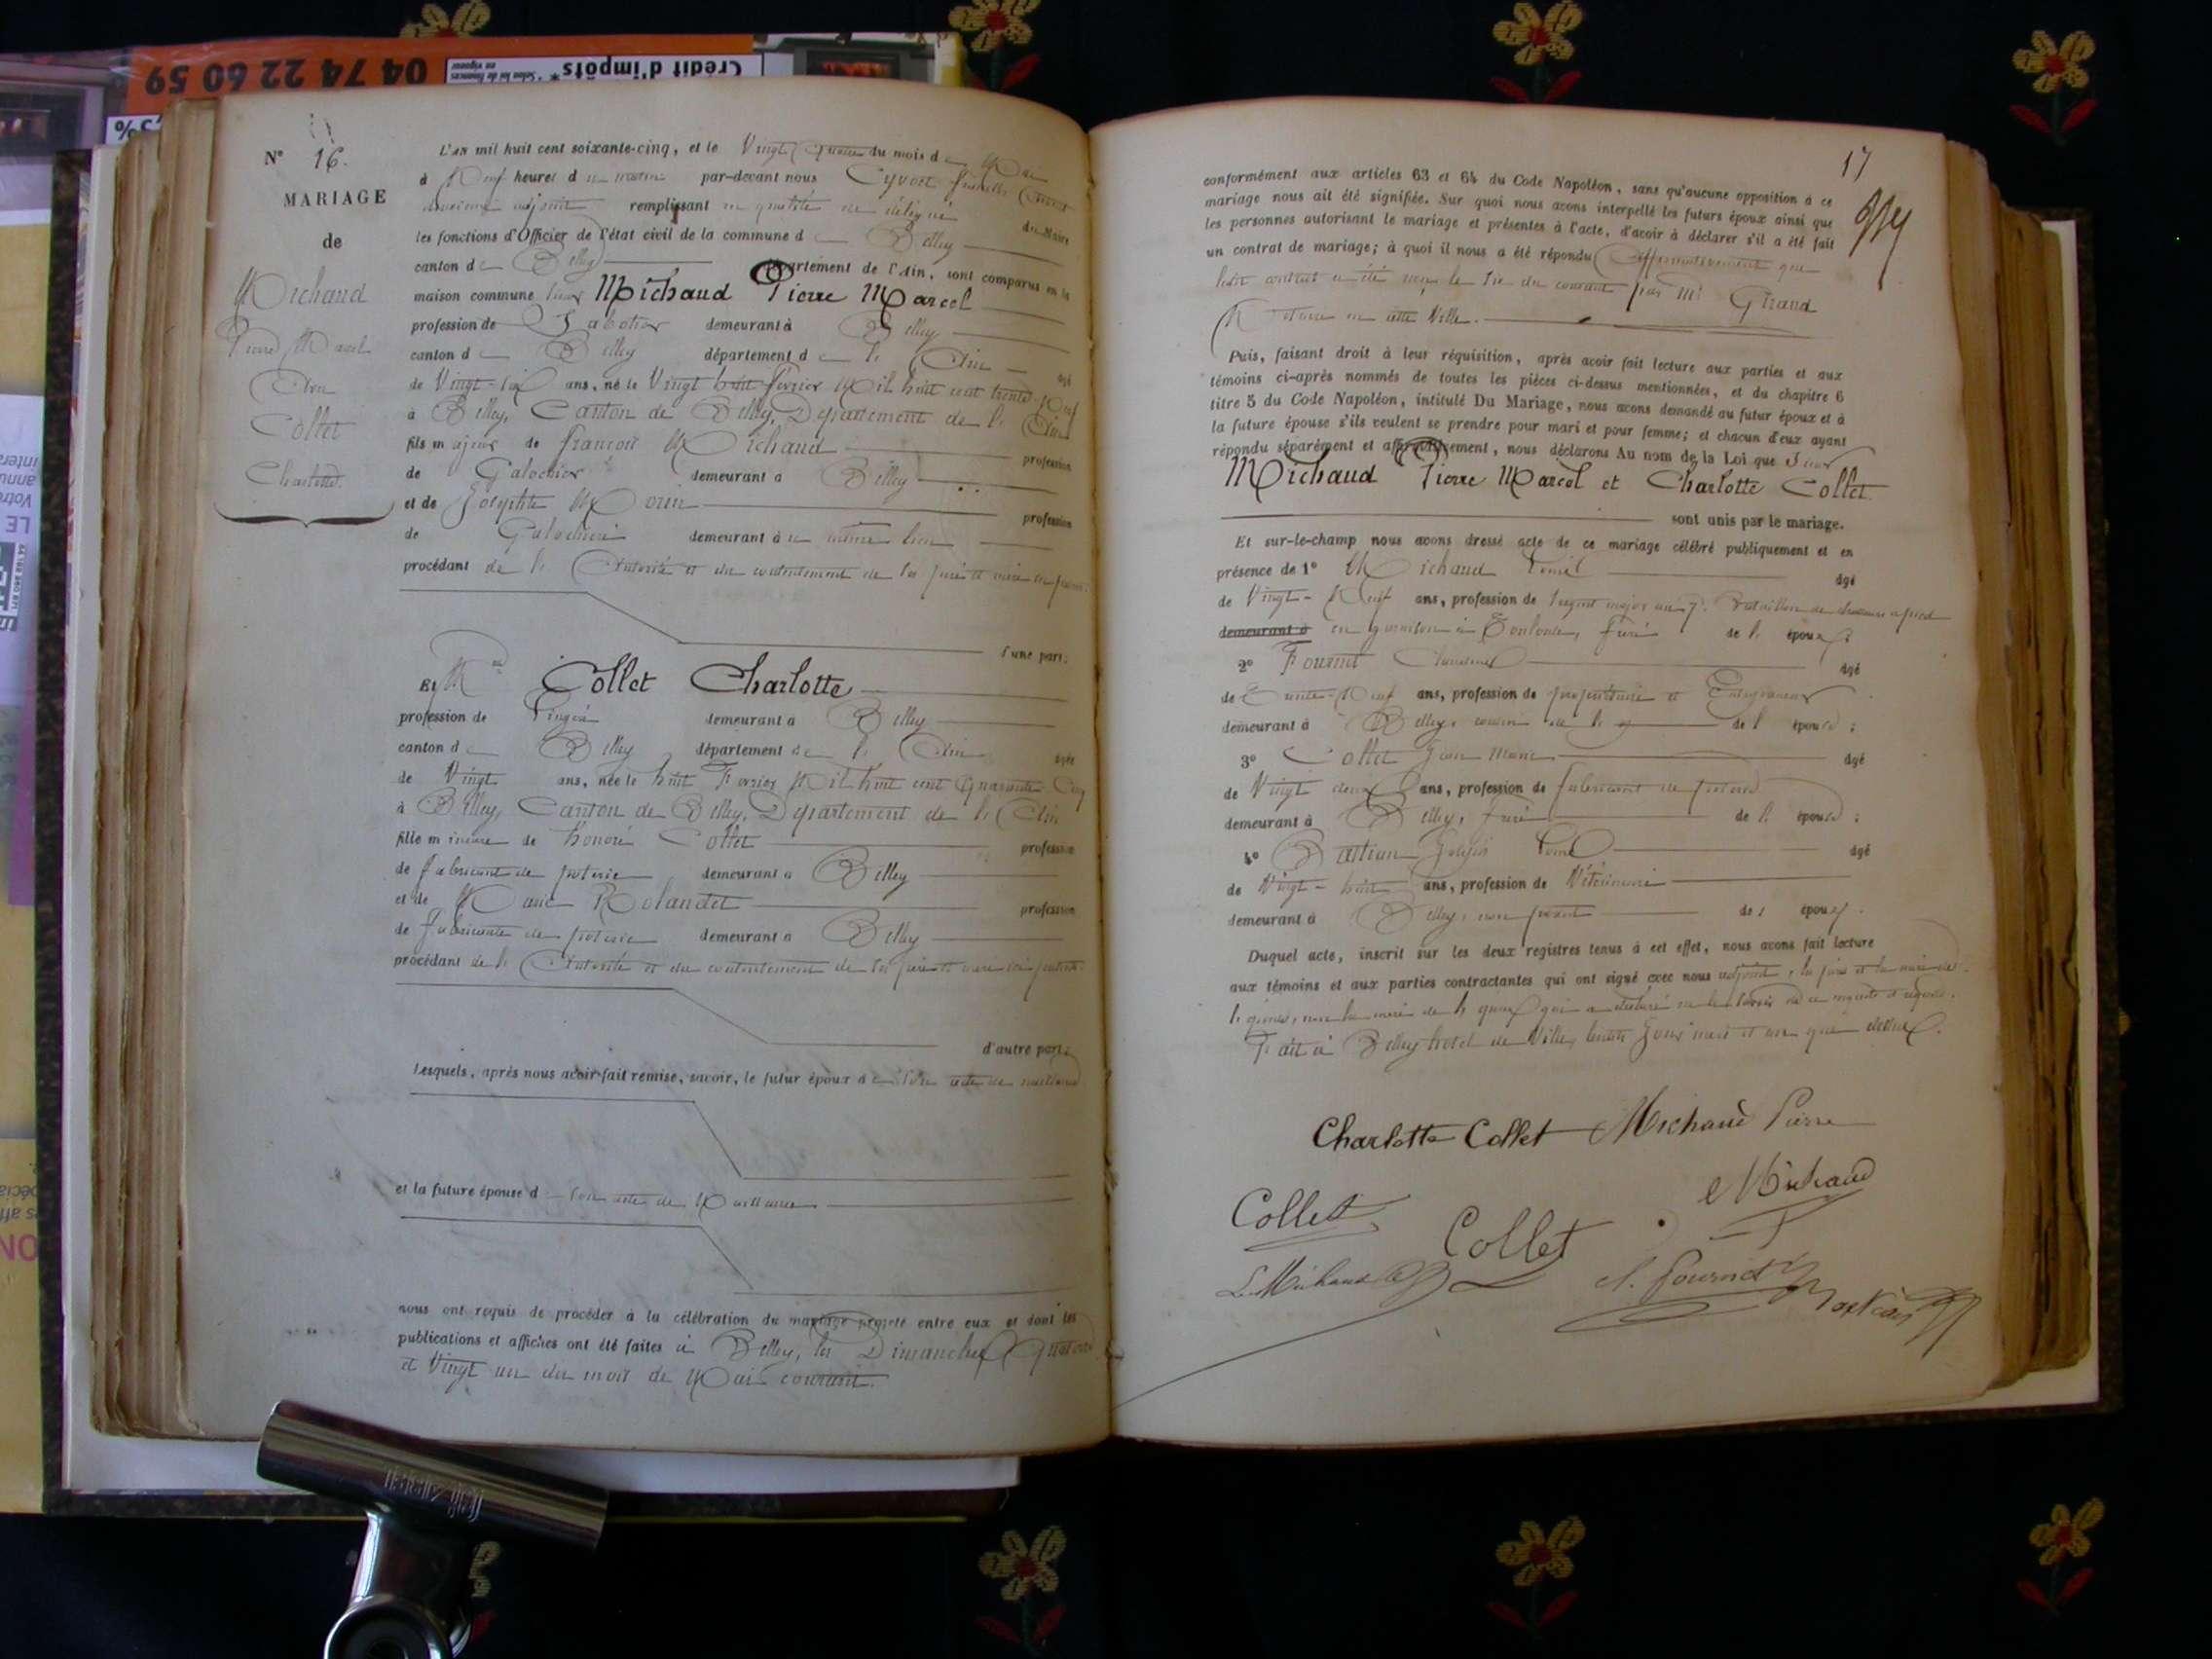 04 74 22 60 59
Crédit d'impôts*
N° 16.
MARIAGE
de
Michaud
Pierre Marcel
Avec
Collet
Charlotte.
L'an mil huit cent soixante-cinq, et le Vingt du mois de Mai
à Neuf heures du matin par-devant nous Cyvoct
adjoint remplissant en qualité de délégué du Maire
les fonctions d'Officier de l'état civil de la commune de Belley
canton de Belley département de l'Ain, sont comparus en la
maison commune sieur Michaud Pierre Marcel
profession de Sabotier demeurant à Belley
canton de Belley département de l'Ain âgé
de Vingt-six ans, né le Vingt huit février Mil huit cent trente-Neuf
à Belley, Canton de Belley, Département de l'Ain
fils majeur de françois Michaud profession
de Galochier demeurant à Belley
et de Morin profession
de Galochière demeurant à au même lieu
procédant de l'Autorité et du contentement de ses père et mère ici présents
d'une part;
Et Mlle Collet Charlotte
profession de Lingère demeurant à Belley
canton de Belley département de l'Ain âgée
de Vingt ans, née le huit Février Mil huit cent Quarante Cinq
à Belley, Canton de Belley, Département de l'Ain
fille mineure de honoré Collet profession
de fabricant de poterie demeurant à Belley
et de Marie Rolandet profession
de fabricante de poterie demeurant à Belley
procédant de l'Autorité et du contentement de ses père et mère ici présents
d'autre part;
Lesquels, après nous avoir fait remise, savoir, le futur époux de son acte de naissance
et la future épouse d son acte de Naissance
nous ont requis de procéder à la célébration du mariage projeté entre eux et dont les
publications et affiches ont été faites à Belley, les Dimanches Quatorze
et Vingt un du mois de Mai courant.
17
conformément aux articles 63 et 64 du Code Napoléon, sans qu'aucune opposition à ce
mariage nous ait été signifiée. Sur quoi nous avons interpellé les futurs époux ainsi que
les personnes autorisant le mariage et présentes à l'acte, d'avoir à déclarer s'il a été fait
un contrat de mariage; à quoi il nous a été répondu Affirmativement que
ledit contrat a été reçu le du courant par Me Girand
Notaire en cette Ville.
Puis, faisant droit à leur réquisition, après avoir fait lecture aux parties et aux
témoins ci-après nommés de toutes les pièces ci-dessus mentionnées, et du chapitre 6
titre 5 du Code Napoléon, intitulé Du Mariage, nous avons demandé au futur époux et à
la future épouse s'ils veulent se prendre pour mari et pour femme; et chacun d'eux ayant
répondu séparément et affirmativement, nous déclarons Au nom de la Loi que Sieur
Michaud Pierre Marcel et Charlotte Collet
sont unis par le mariage.
Et sur-le-champ nous avons dressé acte de ce mariage célébré publiquement et en
présence de 1° Michaud Louis âgé
de Vingt-Neuf ans, profession de Sergent major au 7e Bataillon de chasseurs à pied
demeurant à en garnison à Toulouse, frère de l'époux;
2° Fournet âgé
de Trente-Neuf ans, profession de propriétaire et Entrepreneur
demeurant à Belley, cousin de l'épouse;
3° Collet Jean Marie âgé
de Vingt deux ans, profession de fabricant de poterie
demeurant à Belley, frère de l'épouse;
4° Bastian Louis âgé
de Vingt-huit ans, profession de Vétérinaire
demeurant à Belley, non parent de époux.
Duquel acte, inscrit sur les deux registres tenus à cet effet, nous avons fait lecture
aux témoins et aux parties contractantes qui ont signé avec nous adjoint, les père et la mère de
l'épouse, non la mère de l'époux qui a déclaré ne le savoir de ce enquise et requise.
Fait à Belley hotel de Ville, lesdits Jour mois et an que dessus.
Charlotte Collet Michaud Pierre
Michaud
Collet
Collet
L. Michaud
Fournet
Bastian